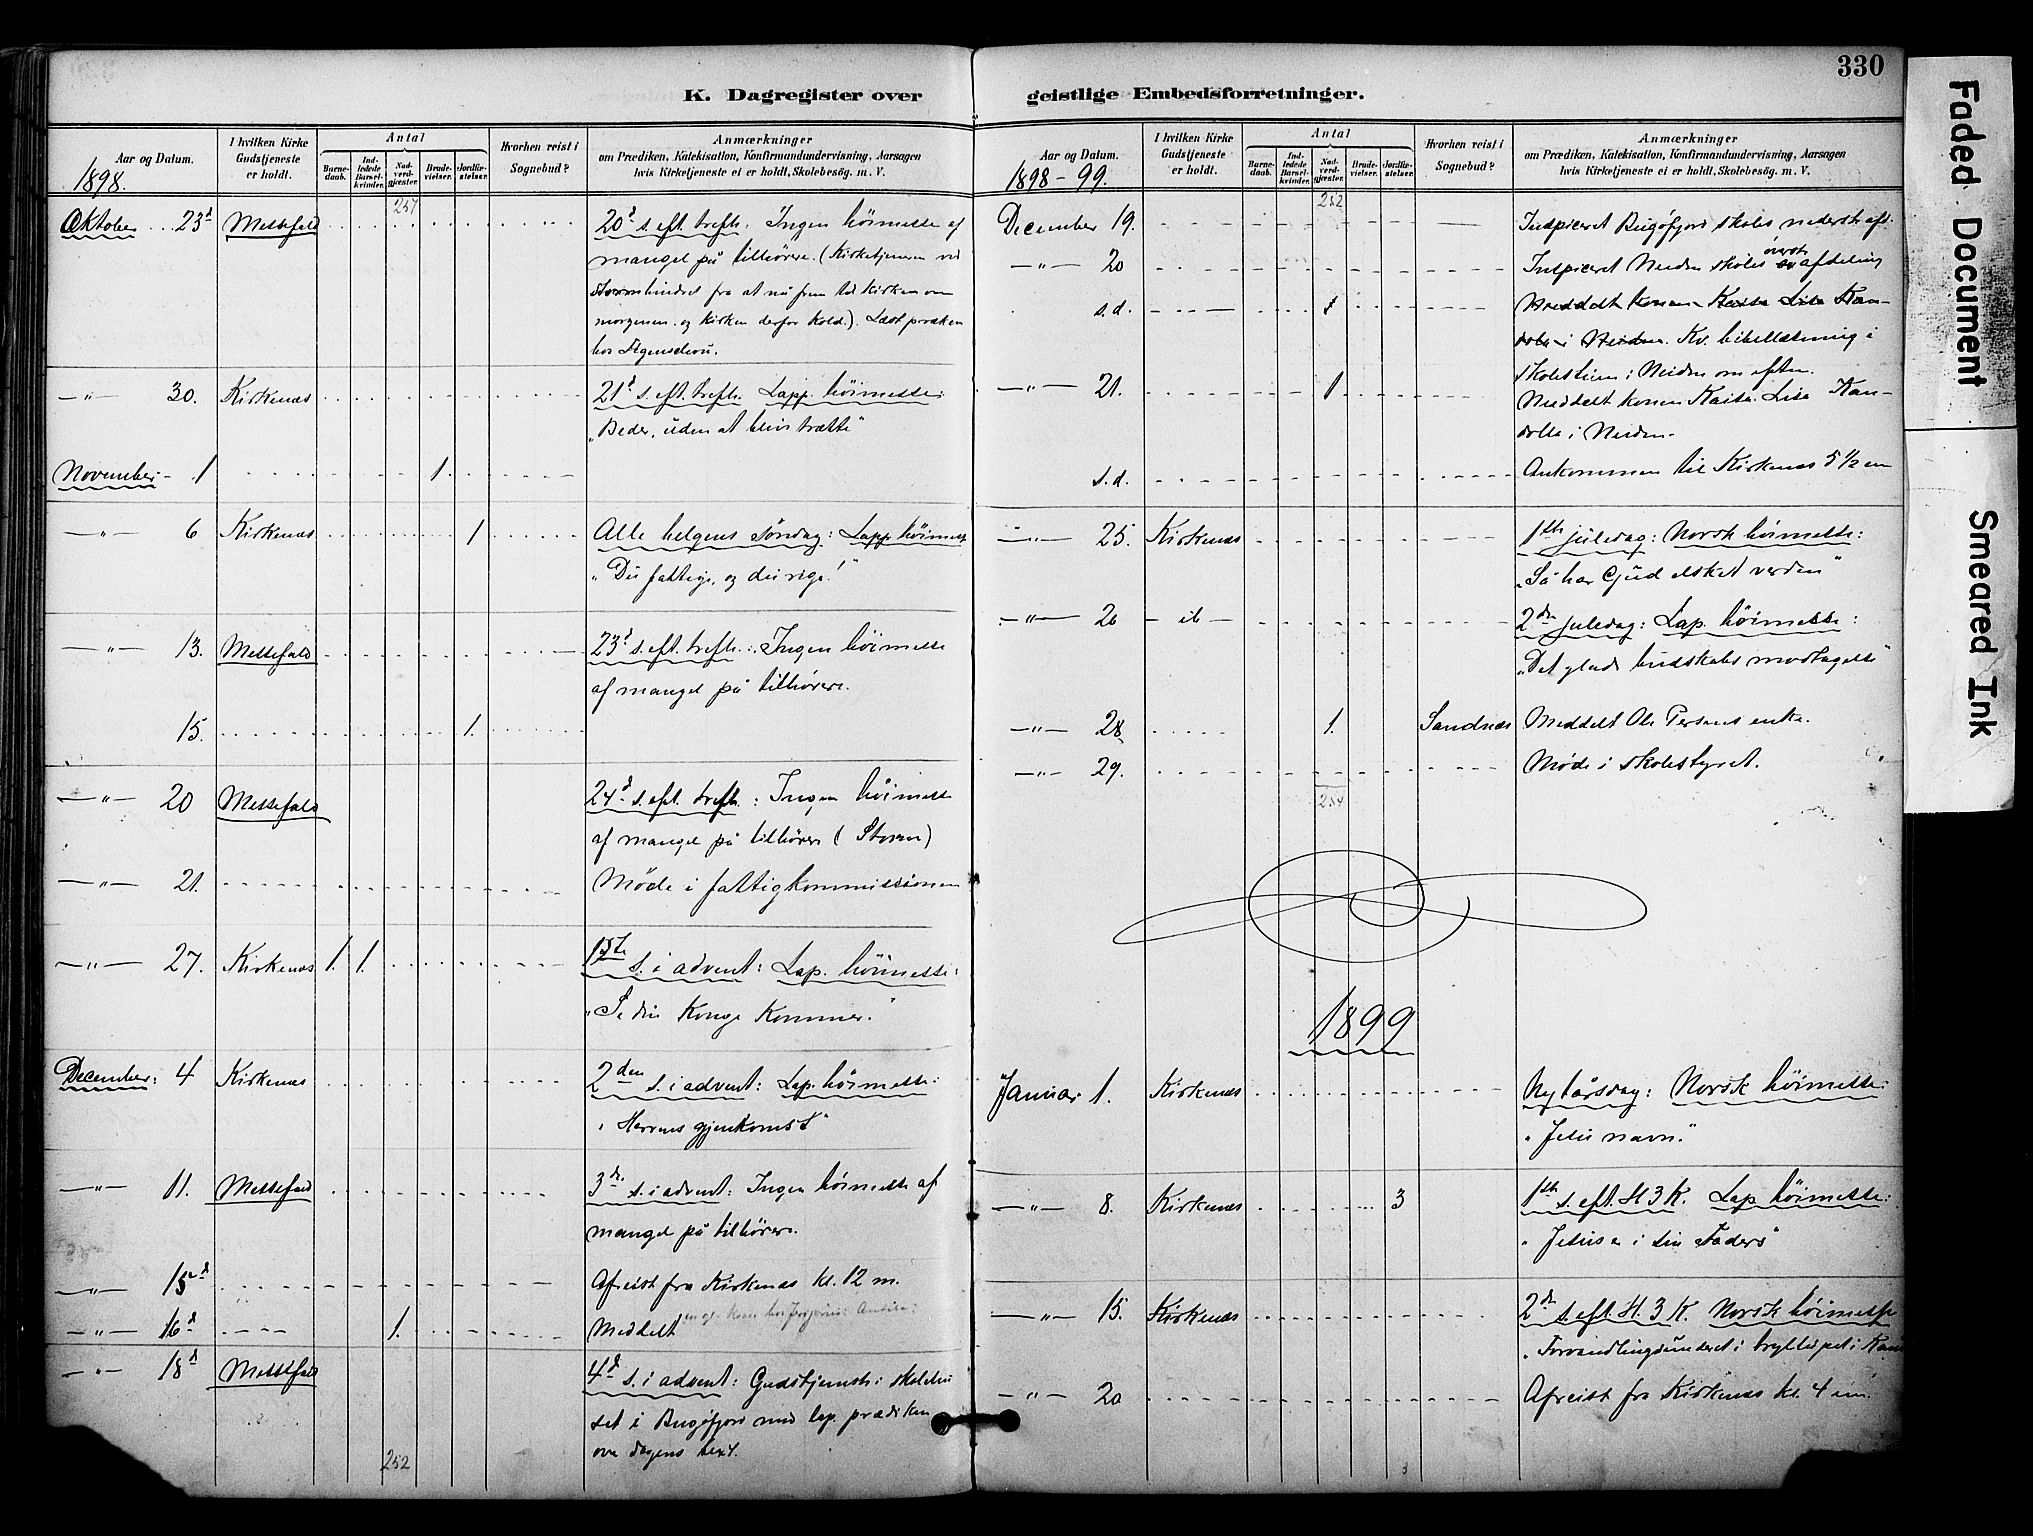 K. Dagregister over
I hvilken Kirke Gudstjeneste er holdt.
Antal
Hvorhen reist i Sognebud?
Anmærkninger
om Prædiken, Katekisation, Konfirmandundervisning, Aarsagen
hvis Kirketjeneste ei er holdt, Skolebesøg. m. V.
Aar og Datum.
Barnedaab.
Indledede Barselkvinder.
Nadverdgjæster.
Brudevielser.
Jordfæstelser.
1898.
257
Oktober 23d Messefald 20d s. eft. trefh: Ingen høimesse af
mangel på tilhörere. (Kirketjeneren ved
storm hindret fra at nå frem til Kirken om
morgenen og Kirken derfor kold.). Læst præken
hos
—"— 30. Kirkenæs 21d s. eft. trefh. Lapp. høimesse:
"Beder, uden at blive trætte"
November 1 1.
—"— 6 Kirkenæs 1 Alle helgens søndag: Lapp. høimesse
"Du fattige, og du rige!"
—"— 13. Messefald 23d s. eft. trefh.: Ingen høimesse
af mangel på tilhörere.
15. 1.
—"— 20 Messefald 24d s. eft. trefh.: Ingen høimesse
af mangel på tilhörere (Storm)
—"— 21. Møde i fattigkommissionen
—"— 27. Kirkenæs 1. 1. 1ste s. i advent: Lap. høimesse:
"Se din Konge Kommer."
December: 4 Kirkenæs 2den s. i advent: Lap. høimesse:
"Herrens gjenkomst"
—"— 11. Messefald 3die s. i advent: Ingen høimesse af
mangel på tilhörere.
—"— 15d Afreist fra Kirkenæs kl. 12 m.
—"— 16d 1. Meddelt
—"— 18d Messefald 4d s. i advent: Gudstjeneste i skolehu
set i Bugöfjord med lap. prædiken
over dagens text.
252
330
geistlige Embedsforretninger.
Aar og Datum.
I hvilken Kirke Gudstjeneste er holdt.
Antal
Barnedaab.
Indledede Barselkvinder.
Nadverdgjæster.
Brudevielser.
Jordfæstelser.
Hvorhen reist i Sognebud?
Anmærkninger
om Prædiken, Katekisation, Konfirmandundervisning, Aarsagen
hvis Kirketjeneste ei er holdt, Skolebesøg. m. V.
1898-99.
252
December 19. Inspiceret Bugöfjord skoles nederste afd.
—"— 20 Inspiceret Neiden skoles øvste afdeling
s.d. 1 Meddelt konen Kaisa Lisa Kan-
i Neiden. Kv. bibellæsning i
skolestuen i Neiden om aften.
—"— 21. 1 Meddelt konen Kaisa Lisa Kan-
i Neiden.
s.d. Ankommen til Kirkenæs 5 1/2 em
—"— 25. Kirkenæs 1ste juledag: Norsk høimesse:
"Så har Gud elsket verden"
—"— 26 – ib – 2den juledag: Lap. høimesse:
"Det glade budskabs modtagelse"
—"— 28. 1. Sandnæs Meddelt Ole Persens enke.
—"— 29. Møde i skolestyret.
254
1899
Januar 1. Kirkenæs Nytårsdag: Norsk høimesse:
"Jesu navn."
—"— 8. Kirkenæs 3 1ste s. eft. H. 3 K. Lap. høimesse:
"Jesus er i sin Faders"
—"— 15. Kirkenæs 2den s. eft. H. 3 K. Norsk høimesse
"Forvandlingsunderet i bryllupet i Kana
—"— 20 Afreist fra Kirkenæs kl. 4 em.
3
Faded Document
Smeared Ink